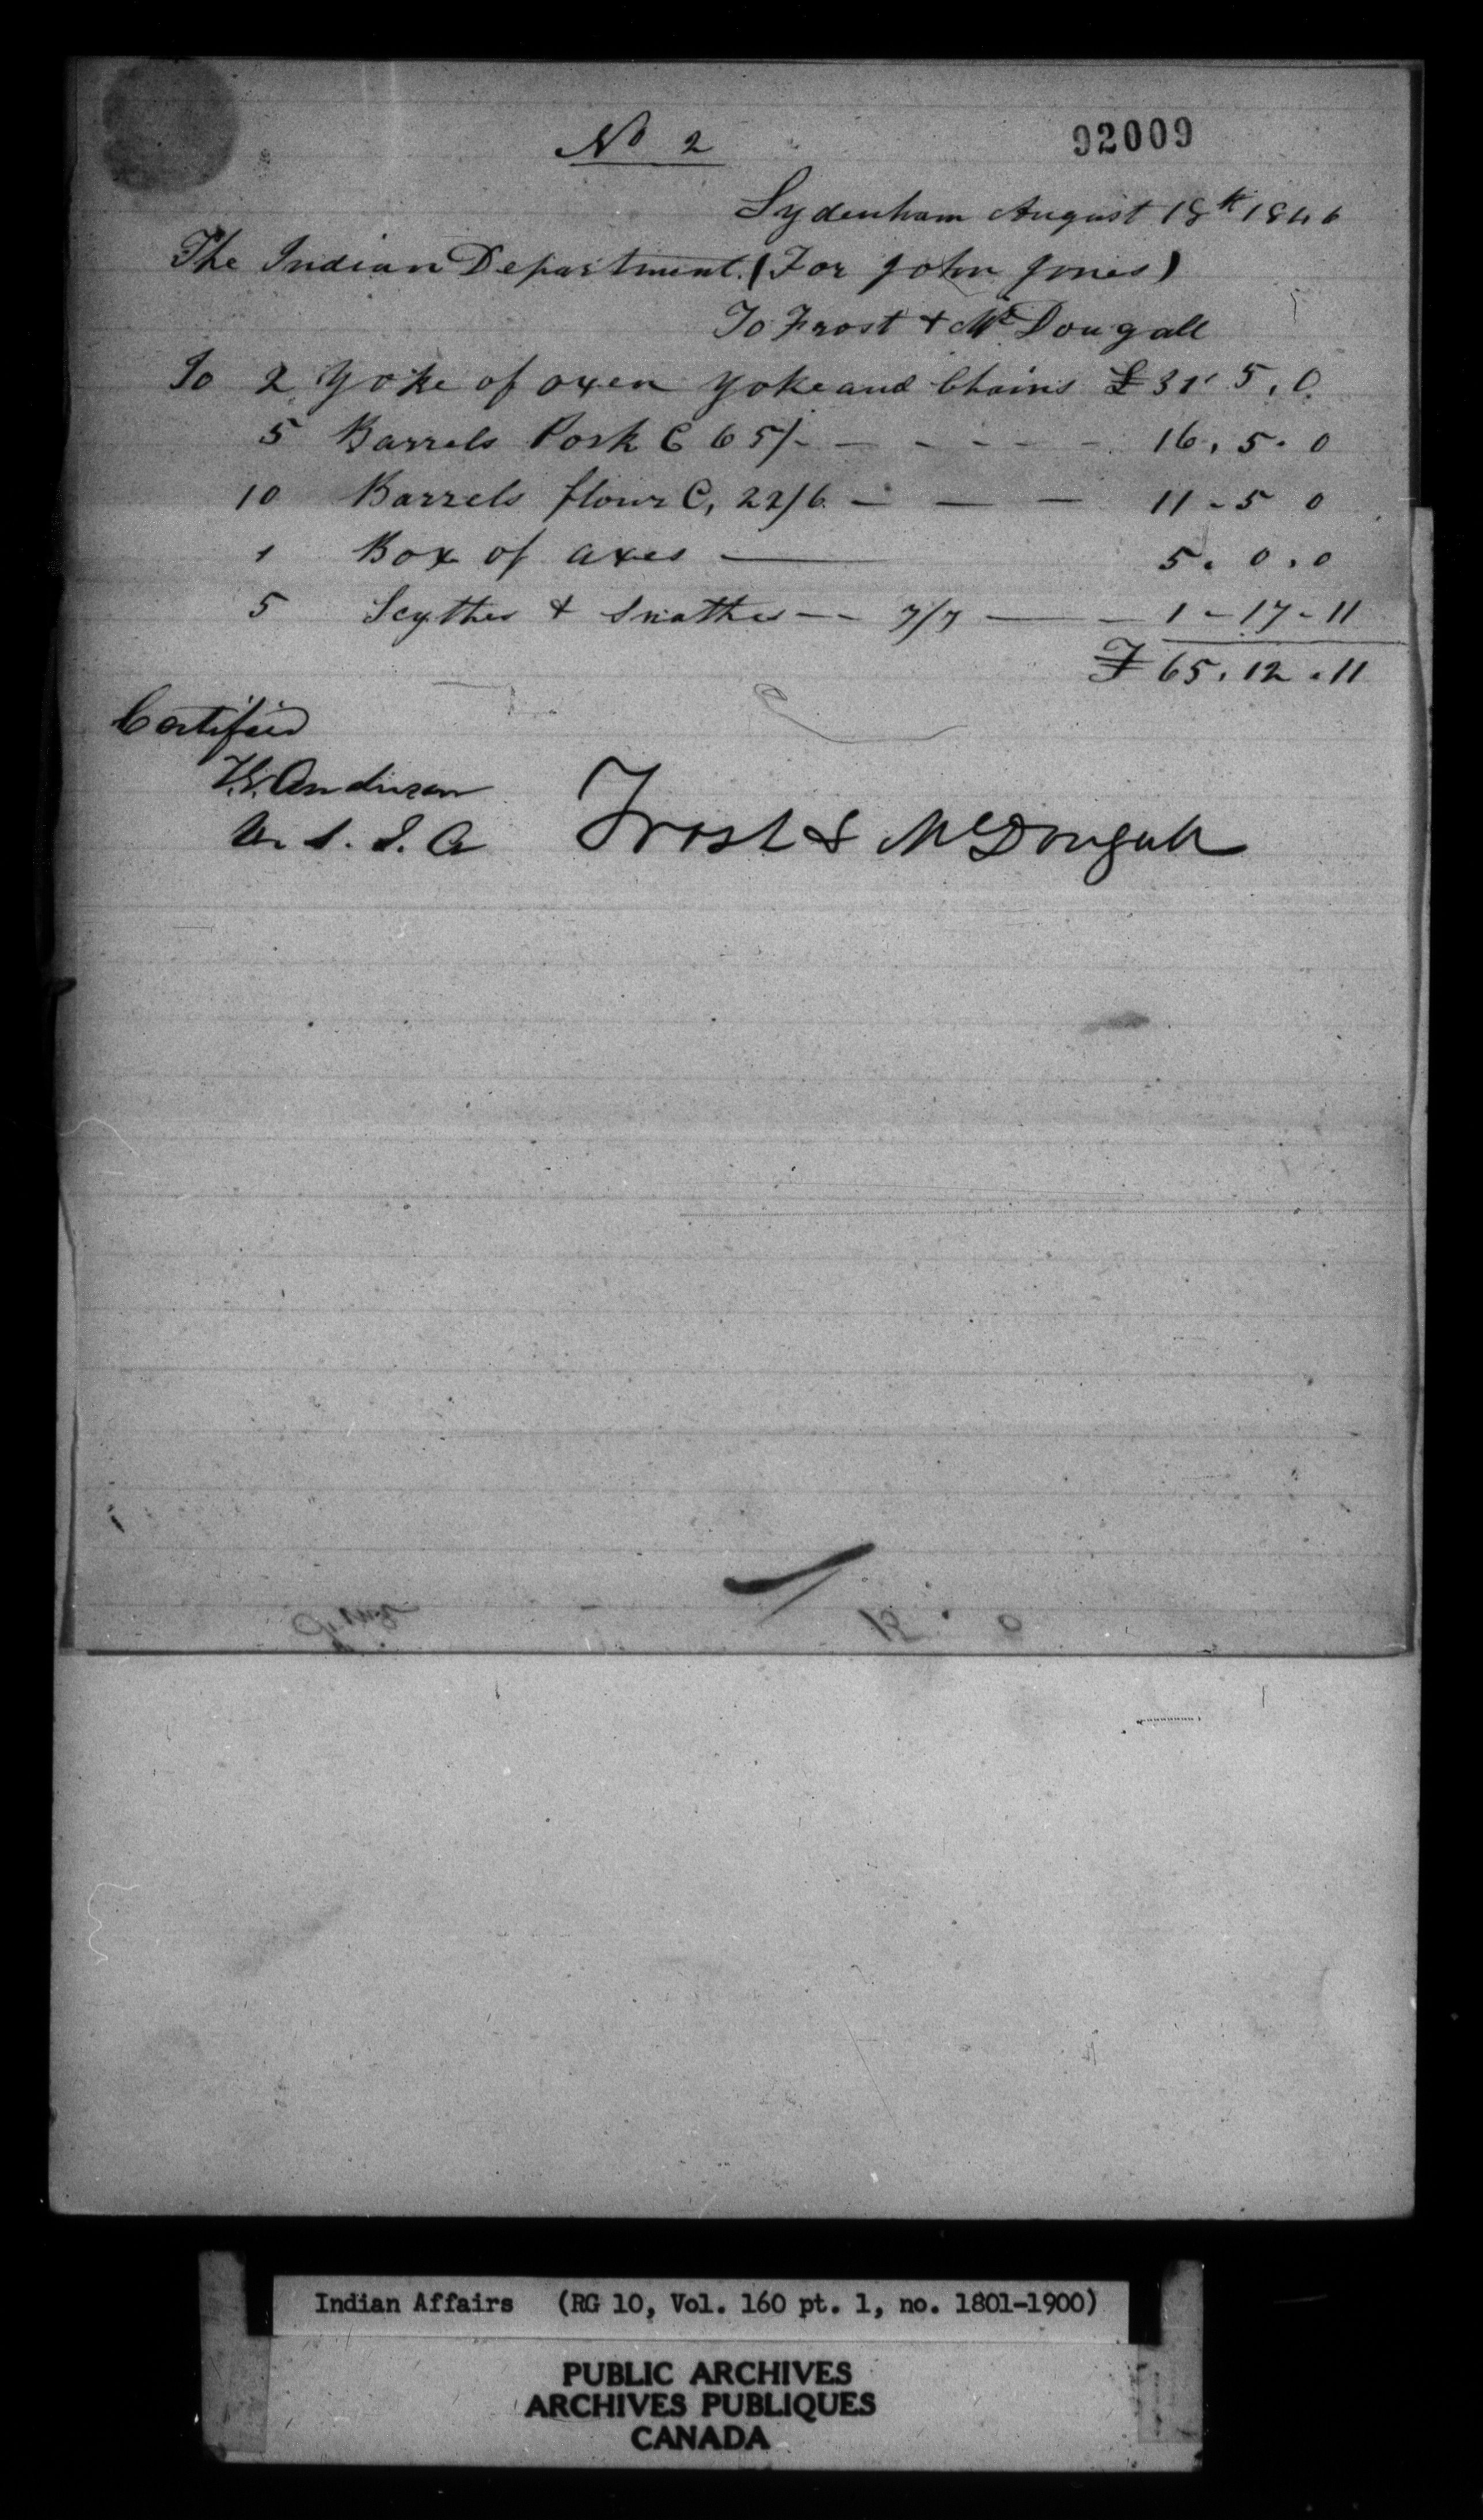 No 2
92009
Sydenham August 18th 1846
The Indian Department. (For John Jones)
To Frost & McDougall
To 2 Yoke of oxen Yoke and Chains £ 31. 5. 0.
5 Barrels Pork @ 65/- - - - - - 16. 5. 0
10 Barrels flour @, 22/6 - - - 11 - 5 0
1 Box of axes - 5. 0. 0
5 Scythes & Snathes - - 7/7 - - 1 - 17 - 11
£ 65. 12. 11
Certified
T.G. Anderson
S. I. A
Frost & McDougall
Indian Affairs (RG 10, Vol. 160 pt. 1, no. 1801-1900)
PUBLIC ARCHIVES
ARCHIVES PUBLIQUES
CANADA